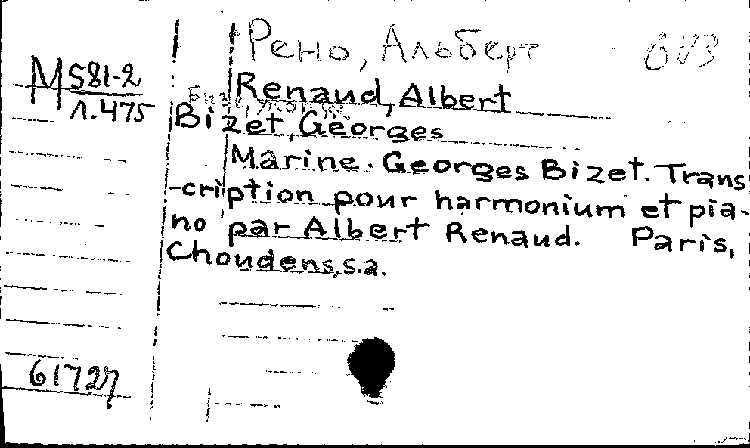 Рено, Альберт
М 581-2
1.475
Renaud, Albert
Bizet, Georges
Marine. Georges Bizet. Trans
-cription pour harmonium et pia-
no par Albert Renaud. Paris,
Choudens, s.a.
61727